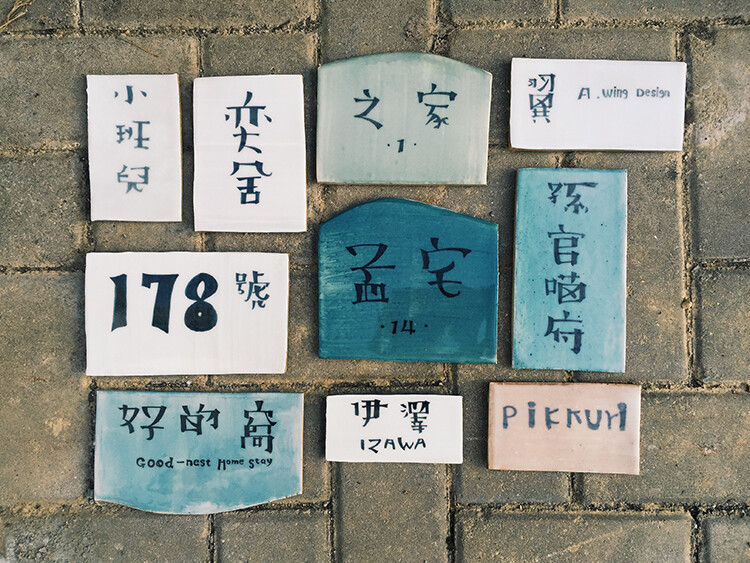 小班兒
奕舍
之家
·1·
翼 A.Wing Design
178號
孟宅
·14·
孫官喵府
好的窩
Good-nest Home stay
伊澤
IZAWA
PiKKURI